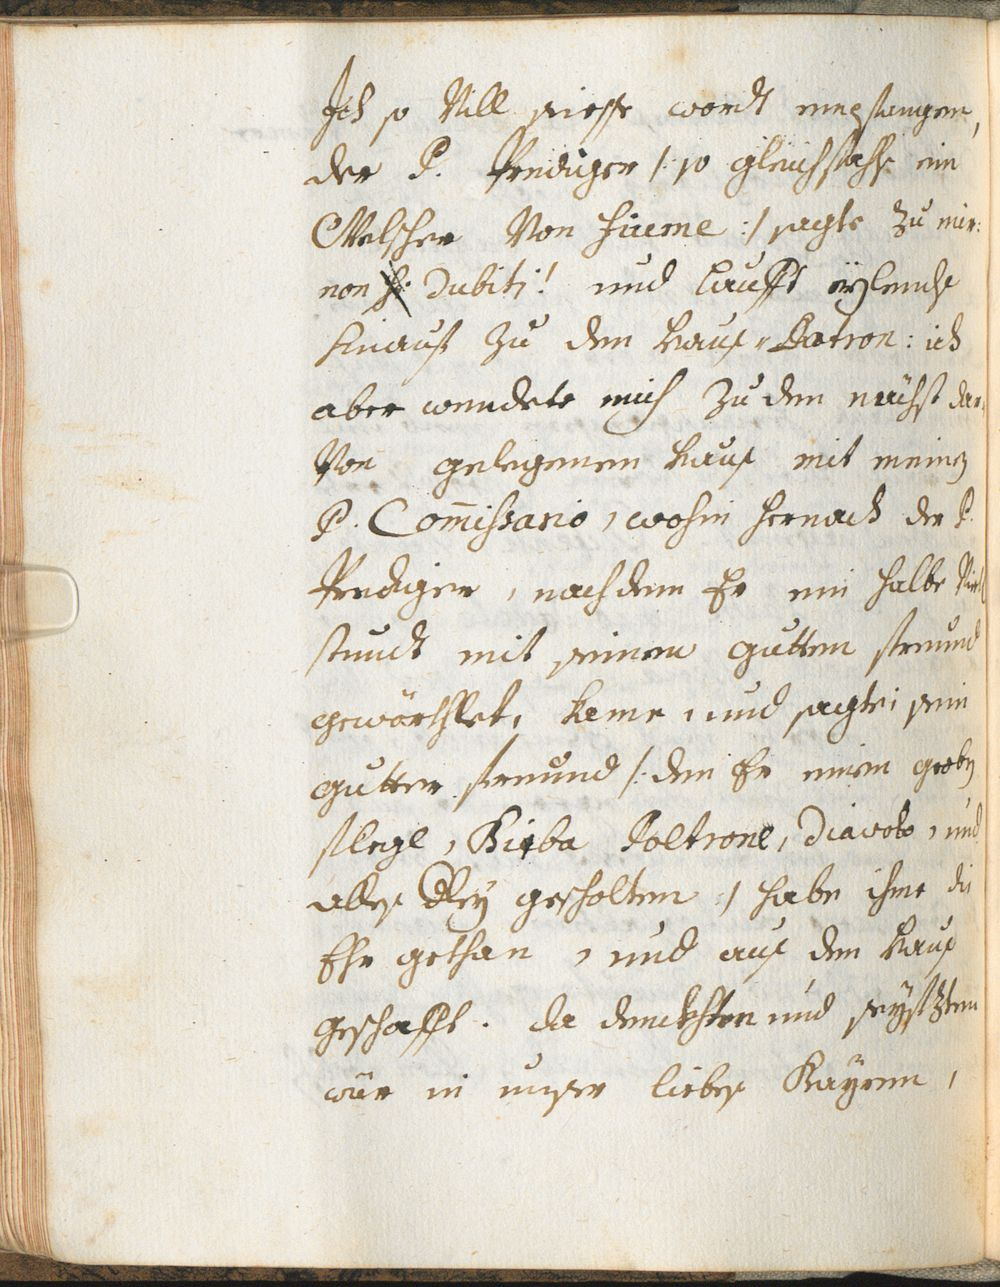 Ich so vill süesse wordt eingfangen,
der P. Prediger /: so gleichfahls ein
Welscher von Fiume :/ sagte zu mir:
non dubiti! und laufft eylends
hinauß zu dem Hauß-Patron: ich
aber wendete mich zu dem nächst dar-
von gelegenem Hauß mit meinem
P. Commissario, wohin hernach der P.
Prediger, nachdem Er ein halbe Viertl
stundt mit seinem gutten freund
gewörthlet, kame, und sagte, sein
gutter freund /: den Er einen groben
flegl, Birba Poltrone, Diavolo, und
allerley gescholten :/ habe ihme die
Ehr gethan, und auß dem Hauß
geschafft. Da denckhten und seyfftzten
wür in unser liebes Bayrn,